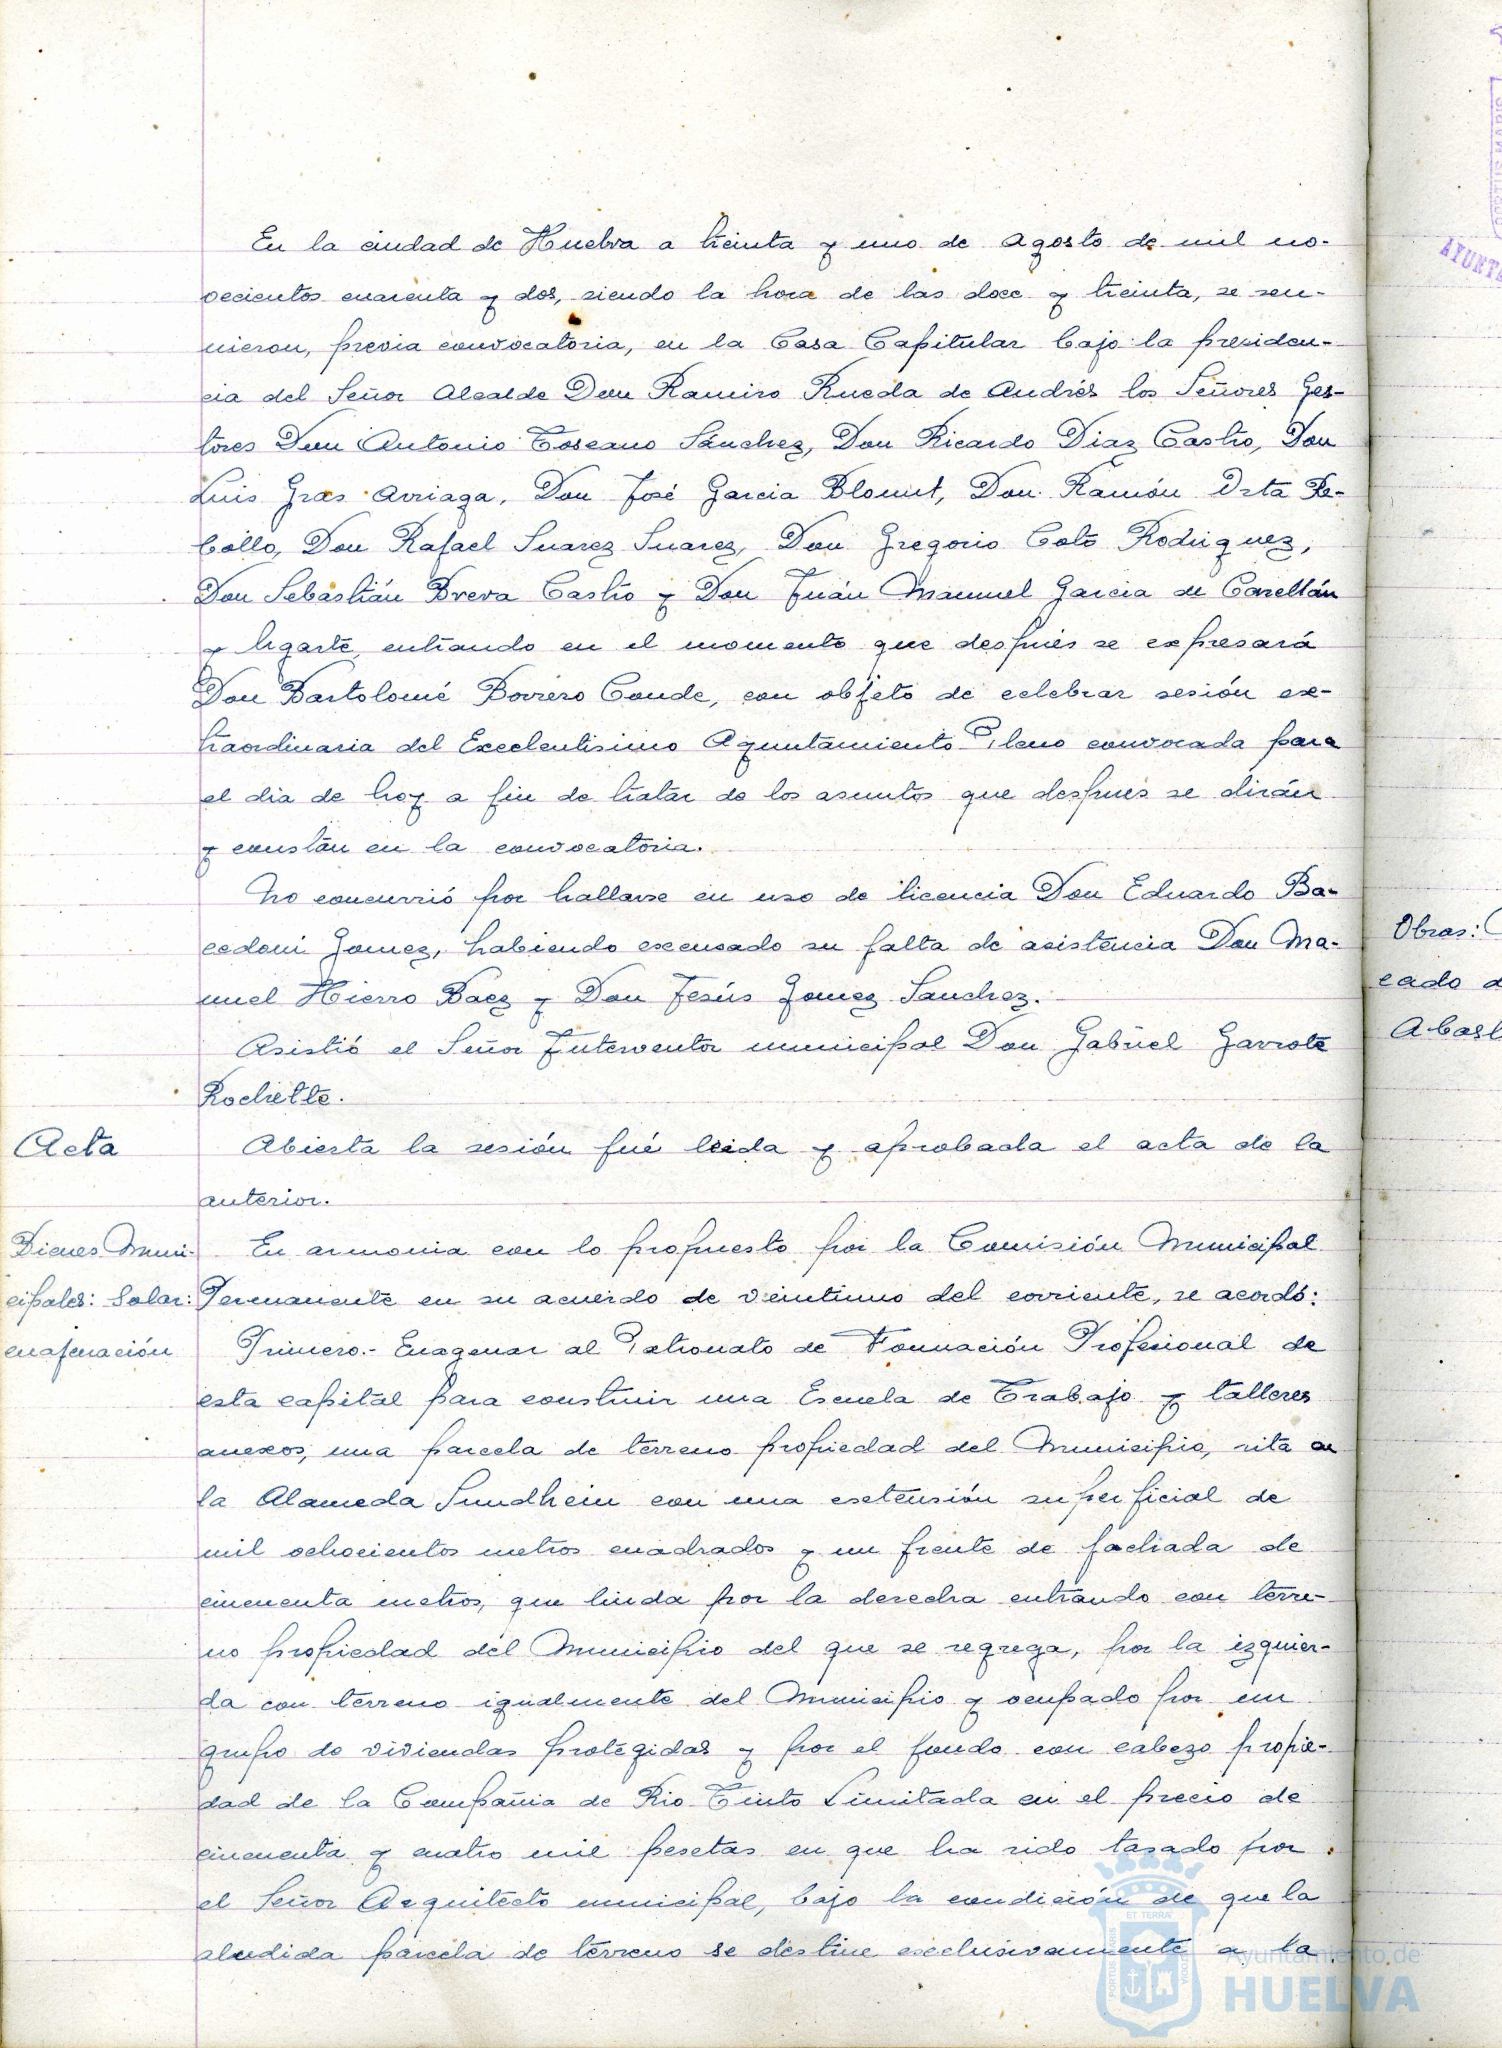 En la ciudad de Huelva a treinta y uno de Agosto de mil no-
vecientos cuarenta y dos, siendo la hora de las doce y treinta, se reu-
nieron, previa convocatoria, en la Casa Capitular bajo la presiden-
cia del Señor Alcalde Don Ramiro Rueda de Andrés los Señores Ges-
tores Don Antonio Toscano Sánchez, Don Ricardo Diaz Castro, Don
Luis Gras Arriaga, Don José Garcia Blomut, Don Ramón Orta Re-
bollo, Don Rafael Suarez Suarez, Don Gregorio Coto Rodriguez,
Don Sebastián Breva Castro y Don Juán Manuel Garcia de Carellán
y Ugarte, entrando en el momento que después se expresará
Don Bartolomé Borrero Conde, con objeto de celebrar sesión ex-
traordinaria del Excelentisimo Ayuntamiento Pleno convocada para
el dia de hoy a fin de tratar de los asuntos que despues se dirán
y constan en la convocatoria.
No concurrió por hallarse en uso de licencia Don Eduardo Ba-
cedoni Gomez, habiendo excusado su falta de asistencia Don Ma-
nuel Hierro Baez y Don Jesús Gomez Sanchez.
Asistió el Señor Interventor municipal Don Gabriel Garrote
Rochette.
Acta
Abierta la sesión fué leida y aprobada el acta de la
anterior.
Bienes Muni-
cipales: Solar:
enajenación
En armonia con lo propuesto por la Comisión Municipal
Permanente en su acuerdo de veintiuno del corriente, se acordó:
Primero.- Enagenar al Patronato de Formación Profesional de
esta capital para construir una Escuela de Trabajo y talleres
anexos, una parcela de terreno propiedad del Municipio, sita en
la Alameda Sundhein con una extensión superficial de
mil ochocientos metros cuadrados y un frente de fachada de
cincuenta metros, que linda por la derecha entrando con terre-
no propiedad del Municipio del que se segrega, por la izquier-
da con terreno igualmente del Municipio y ocupado por un
grupo de viviendas protegidas y por el fondo con cabezo propie-
dad de la Compañia de Rio Tinto Limitada en el precio de
cincuenta y cuatro mil pesetas en que ha sido tasado por
el Señor Arquitecto municipal, bajo la condición de que la
aludida parcela de terreno se destine exclusivamente a la
Obras:
cado
Abast
AYUNT
Ayuntamiento de
HUELVA